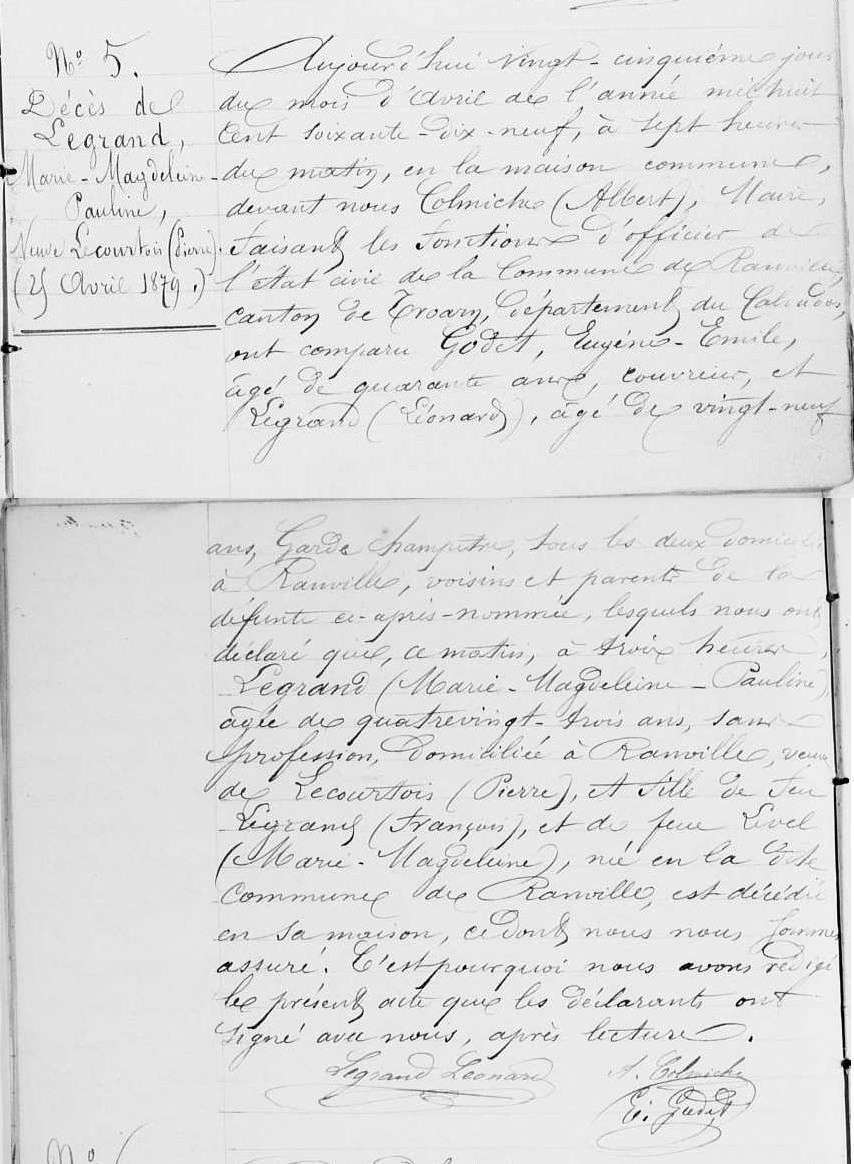 N° 5.
Décès de
Legrand,
Marie-Magdeleine-
Pauline,
Veuve Lecourtois (Pierre).
(25 Avril 1879.)
Aujourd'hui vingt-cinquième jour
du mois d'Avril de l'année mil huit
cent soixante-dix-neuf, à sept heures
du matin, en la maison commune,
devant nous Colmiche (Albert), Maire,
faisant les fonctions d'officier de
l'état civil de la Commune de Ranville,
canton de Troarn, département du Calvados,
ont comparu Godet, Eugène-Emile,
âgé de quarante ans, couvreur, et
Legrand (Léonard), âgé de vingt-neuf
ans, Garde champêtre, tous les deux domiciliés
à Ranville, voisins et parents de la
défunte ci-après-nommée, lesquels nous ont
déclaré que, ce matin, à trois heures,
Legrand (Marie-Magdeleine-Pauline),
âgée de quatrevingt-trois ans, sans
profession, domiciliée à Ranville, veuve
de Lecourtois (Pierre), et fille de feu
Legrand (François), et de feue Level
(Marie-Magdeleine), né en la dite
Commune de Ranville, est décédée
en sa maison, ce dont nous nous sommes
assuré. C'est pourquoi nous avons rédigé
le présent acte que les déclarants ont
signé avec nous, après lecture.
Legrand Léonard
A. Colmiche
E. Godet
N°